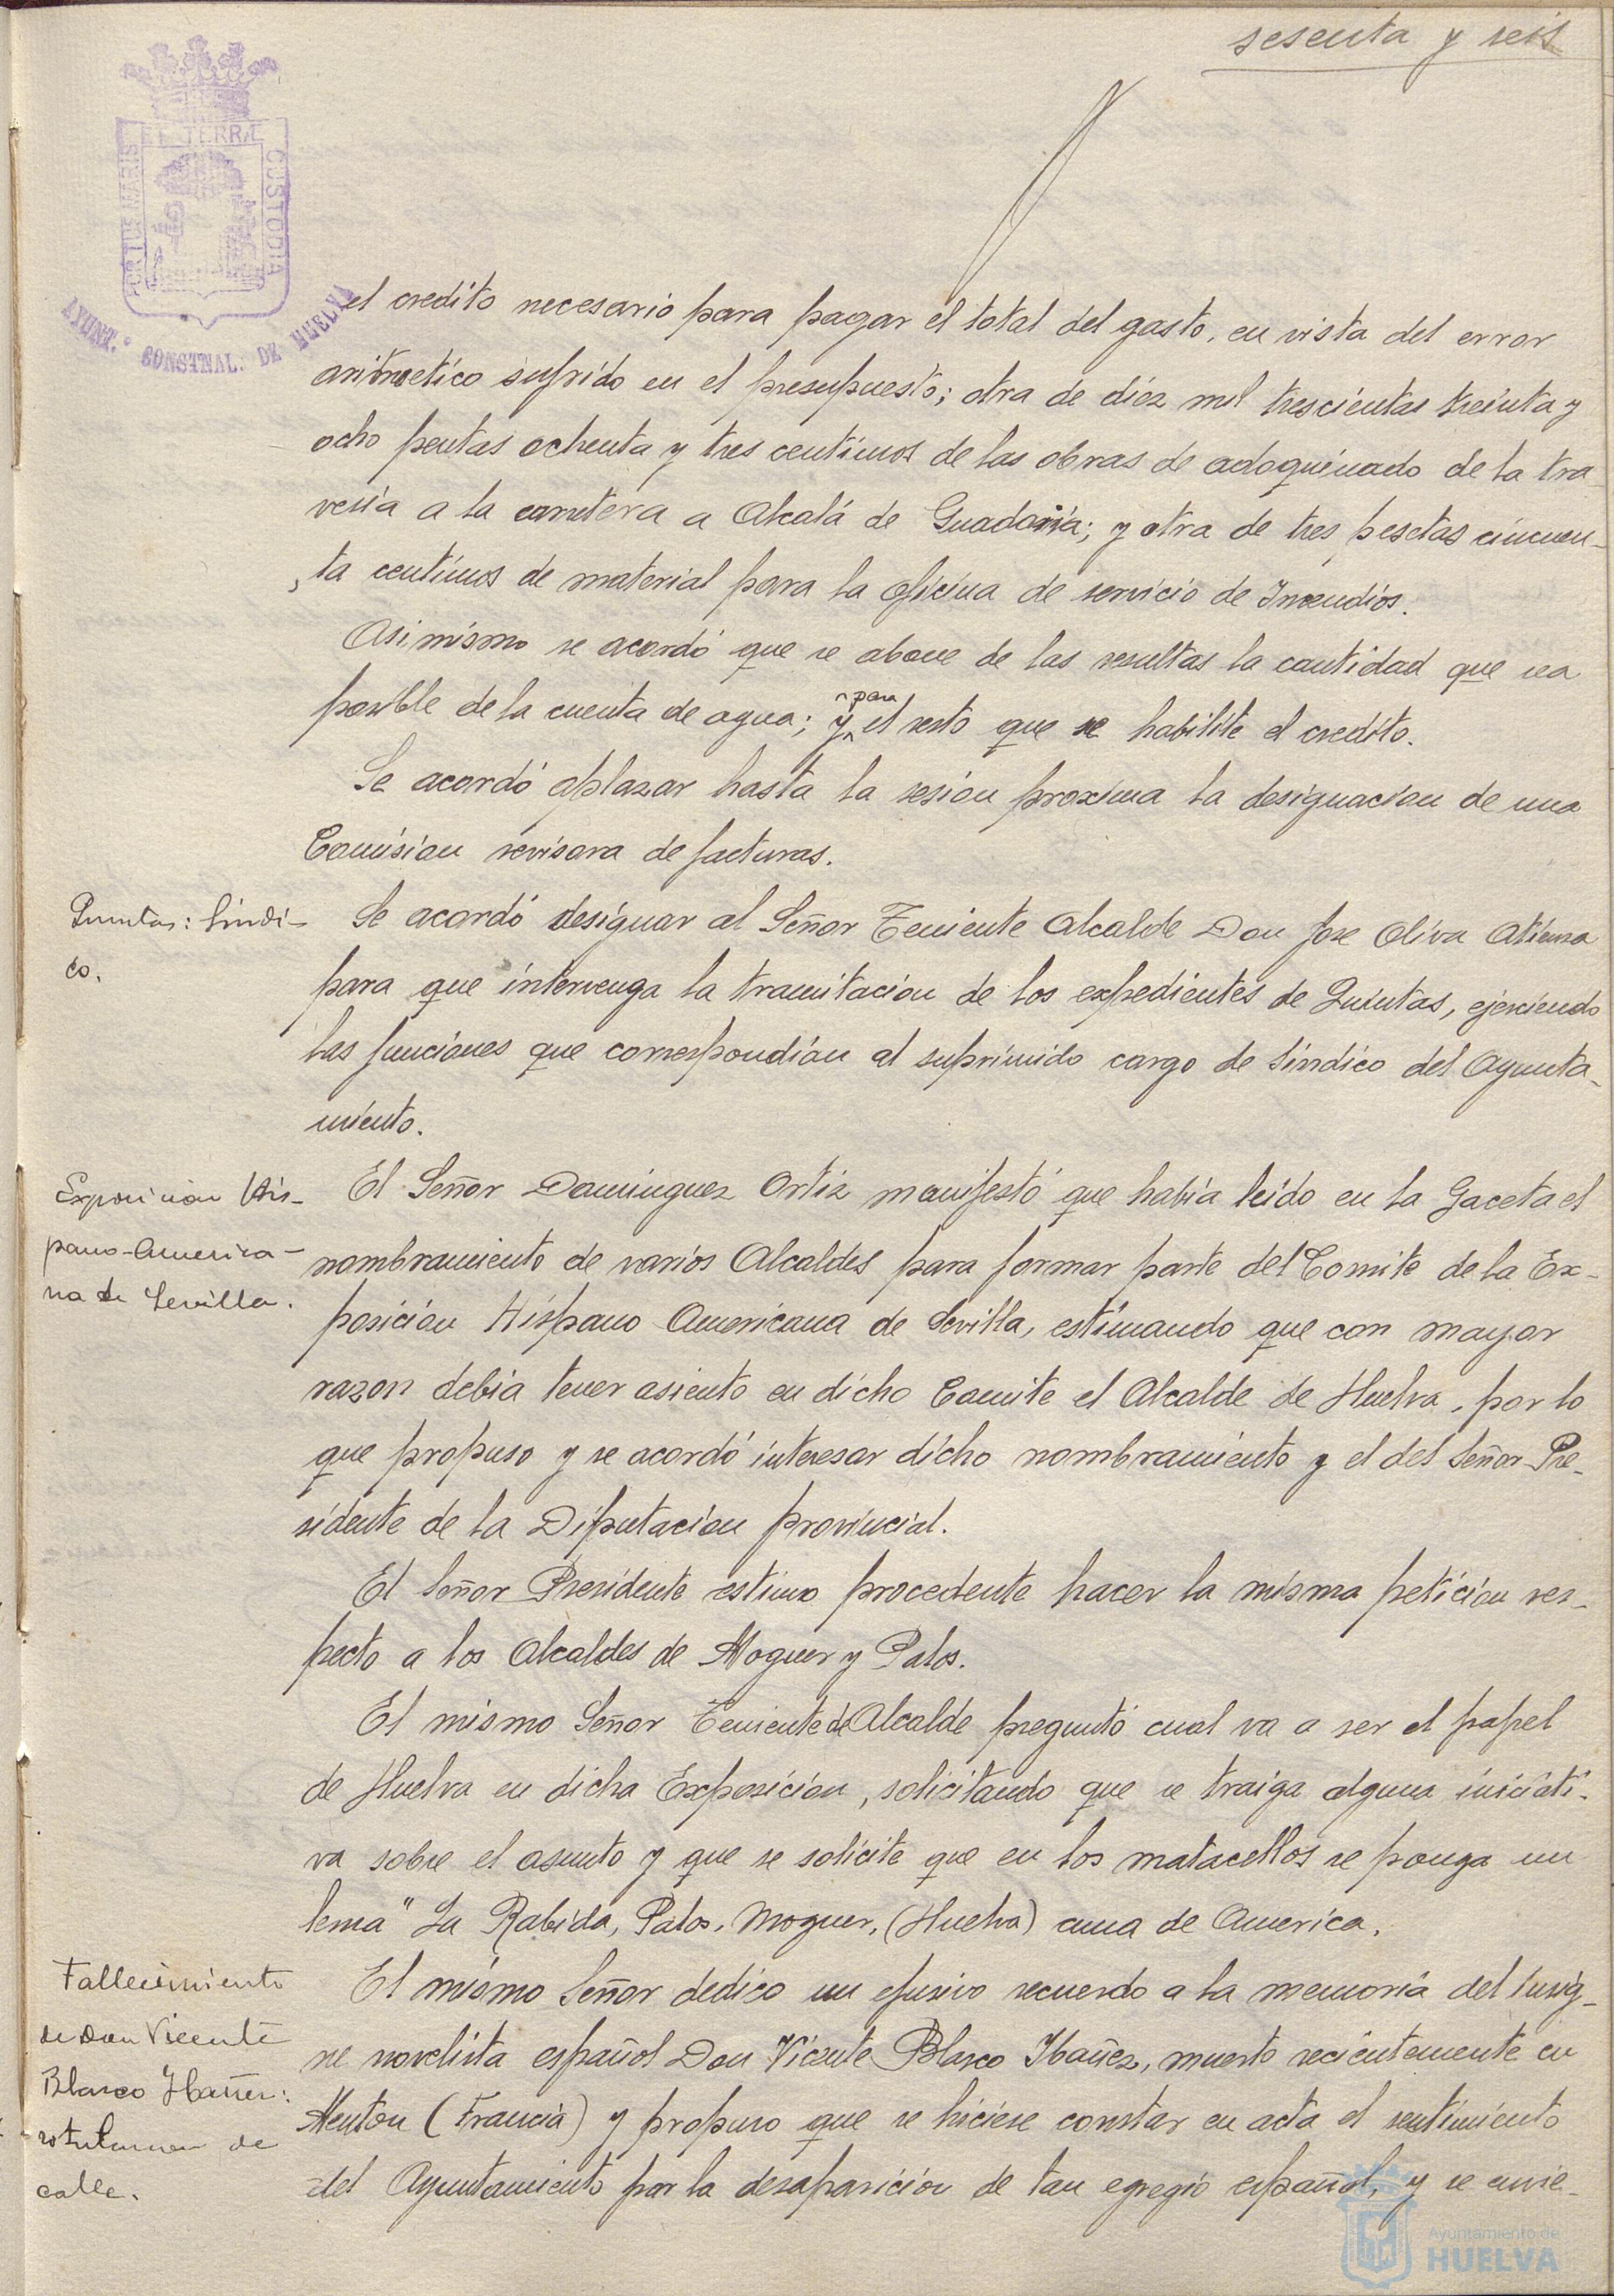 sesenta y seis
PORTUS MARIS ET TERRAE CUSTODIA
AYUNT. CONSTNAL. DE HUELVA
el credito necesario para pagar el total del gasto, en vista del error
aritmetico sufrido en el presupuesto; otra de diez mil trescientas treinta y
ocho pesetas ochenta y tres centimos de las obras de adoquinado de la tra
vesia a la carretera a Alcalá de Guadaira; y otra de tres pesetas cincuen-
ta centimos de material para la oficina de servicio de Incendios.
Asimismo se acordó que se abone de las resultas la cantidad que sea
posible de la cuenta de agua; y para el resto que se habilite el credito.
Se acordó aplazar hasta la sesion proxima la designacion de una
Comision revisora de facturas.
Quintas: Sindi-
co.
Se acordó designar al Señor Teniente Alcalde Don Jose Oliva Atienza
para que intervenga la tramitacion de los expedientes de Quintas, ejerciendo
las funciones que correspondian al suprimido cargo de Sindico del Ayunta-
miento.
Exposicion His-
pano-America-
na de Sevilla.
El Señor Dominguez Ortiz manifestó que habia leido en la Gaceta el
nombramiento de varios Alcaldes para formar parte del Comite de la Ex-
posicion Hispano Americana de Sevilla, estimando que con mayor
razon debia tener asiento en dicho Comite el Alcalde de Huelva, por lo
que propuso y se acordó interesar dicho nombramiento y el del Señor Pre-
sidente de la Diputacion provincial.
El Señor Presidente estimo procedente hacer la misma peticion res-
pecto a los Alcaldes de Moguer y Palos.
El mismo Señor Teniente de Alcalde preguntó cual va a ser el papel
de Huelva en dicha Exposicion, solicitando que se traiga alguna iniciati-
va sobre el asunto y que se solicite que en los matacellos se ponga un
lema "La Rabida, Palos, Moguer, (Huelva) cuna de America.
Fallecimiento
de Don Vicente
Blasco Ibañez:
rotulacion de
calle.
El mismo Señor dedico un efusivo recuerdo a la memoria del insig-
ne novelista español Don Vicente Blasco Ibañez, muerto recientemente en
Menton (Francia) y propuso que se hiciese constar en acta el sentimiento
del Ayuntamiento por la desaparicion de tan egregio español, y se envie-
Ayuntamiento de
HUELVA